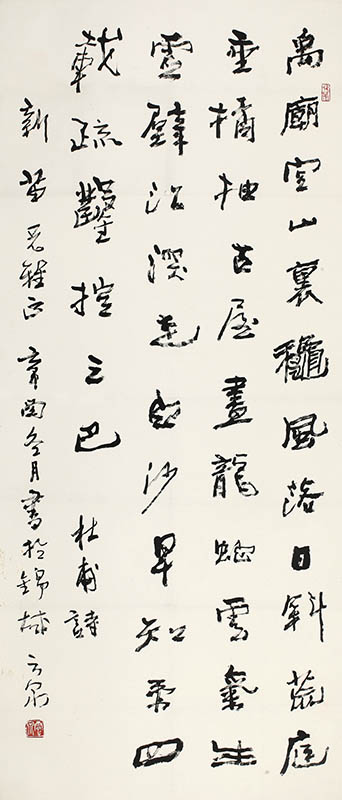 禹廟空山裏龝風落日斜荒庭
垂橘柚古屋畫龍蛇雲氣生
虛壁江深走白沙早知乘四
載疏鑿控三巴 杜甫詩
新苗 雅正 辛酉冬月書於錦城